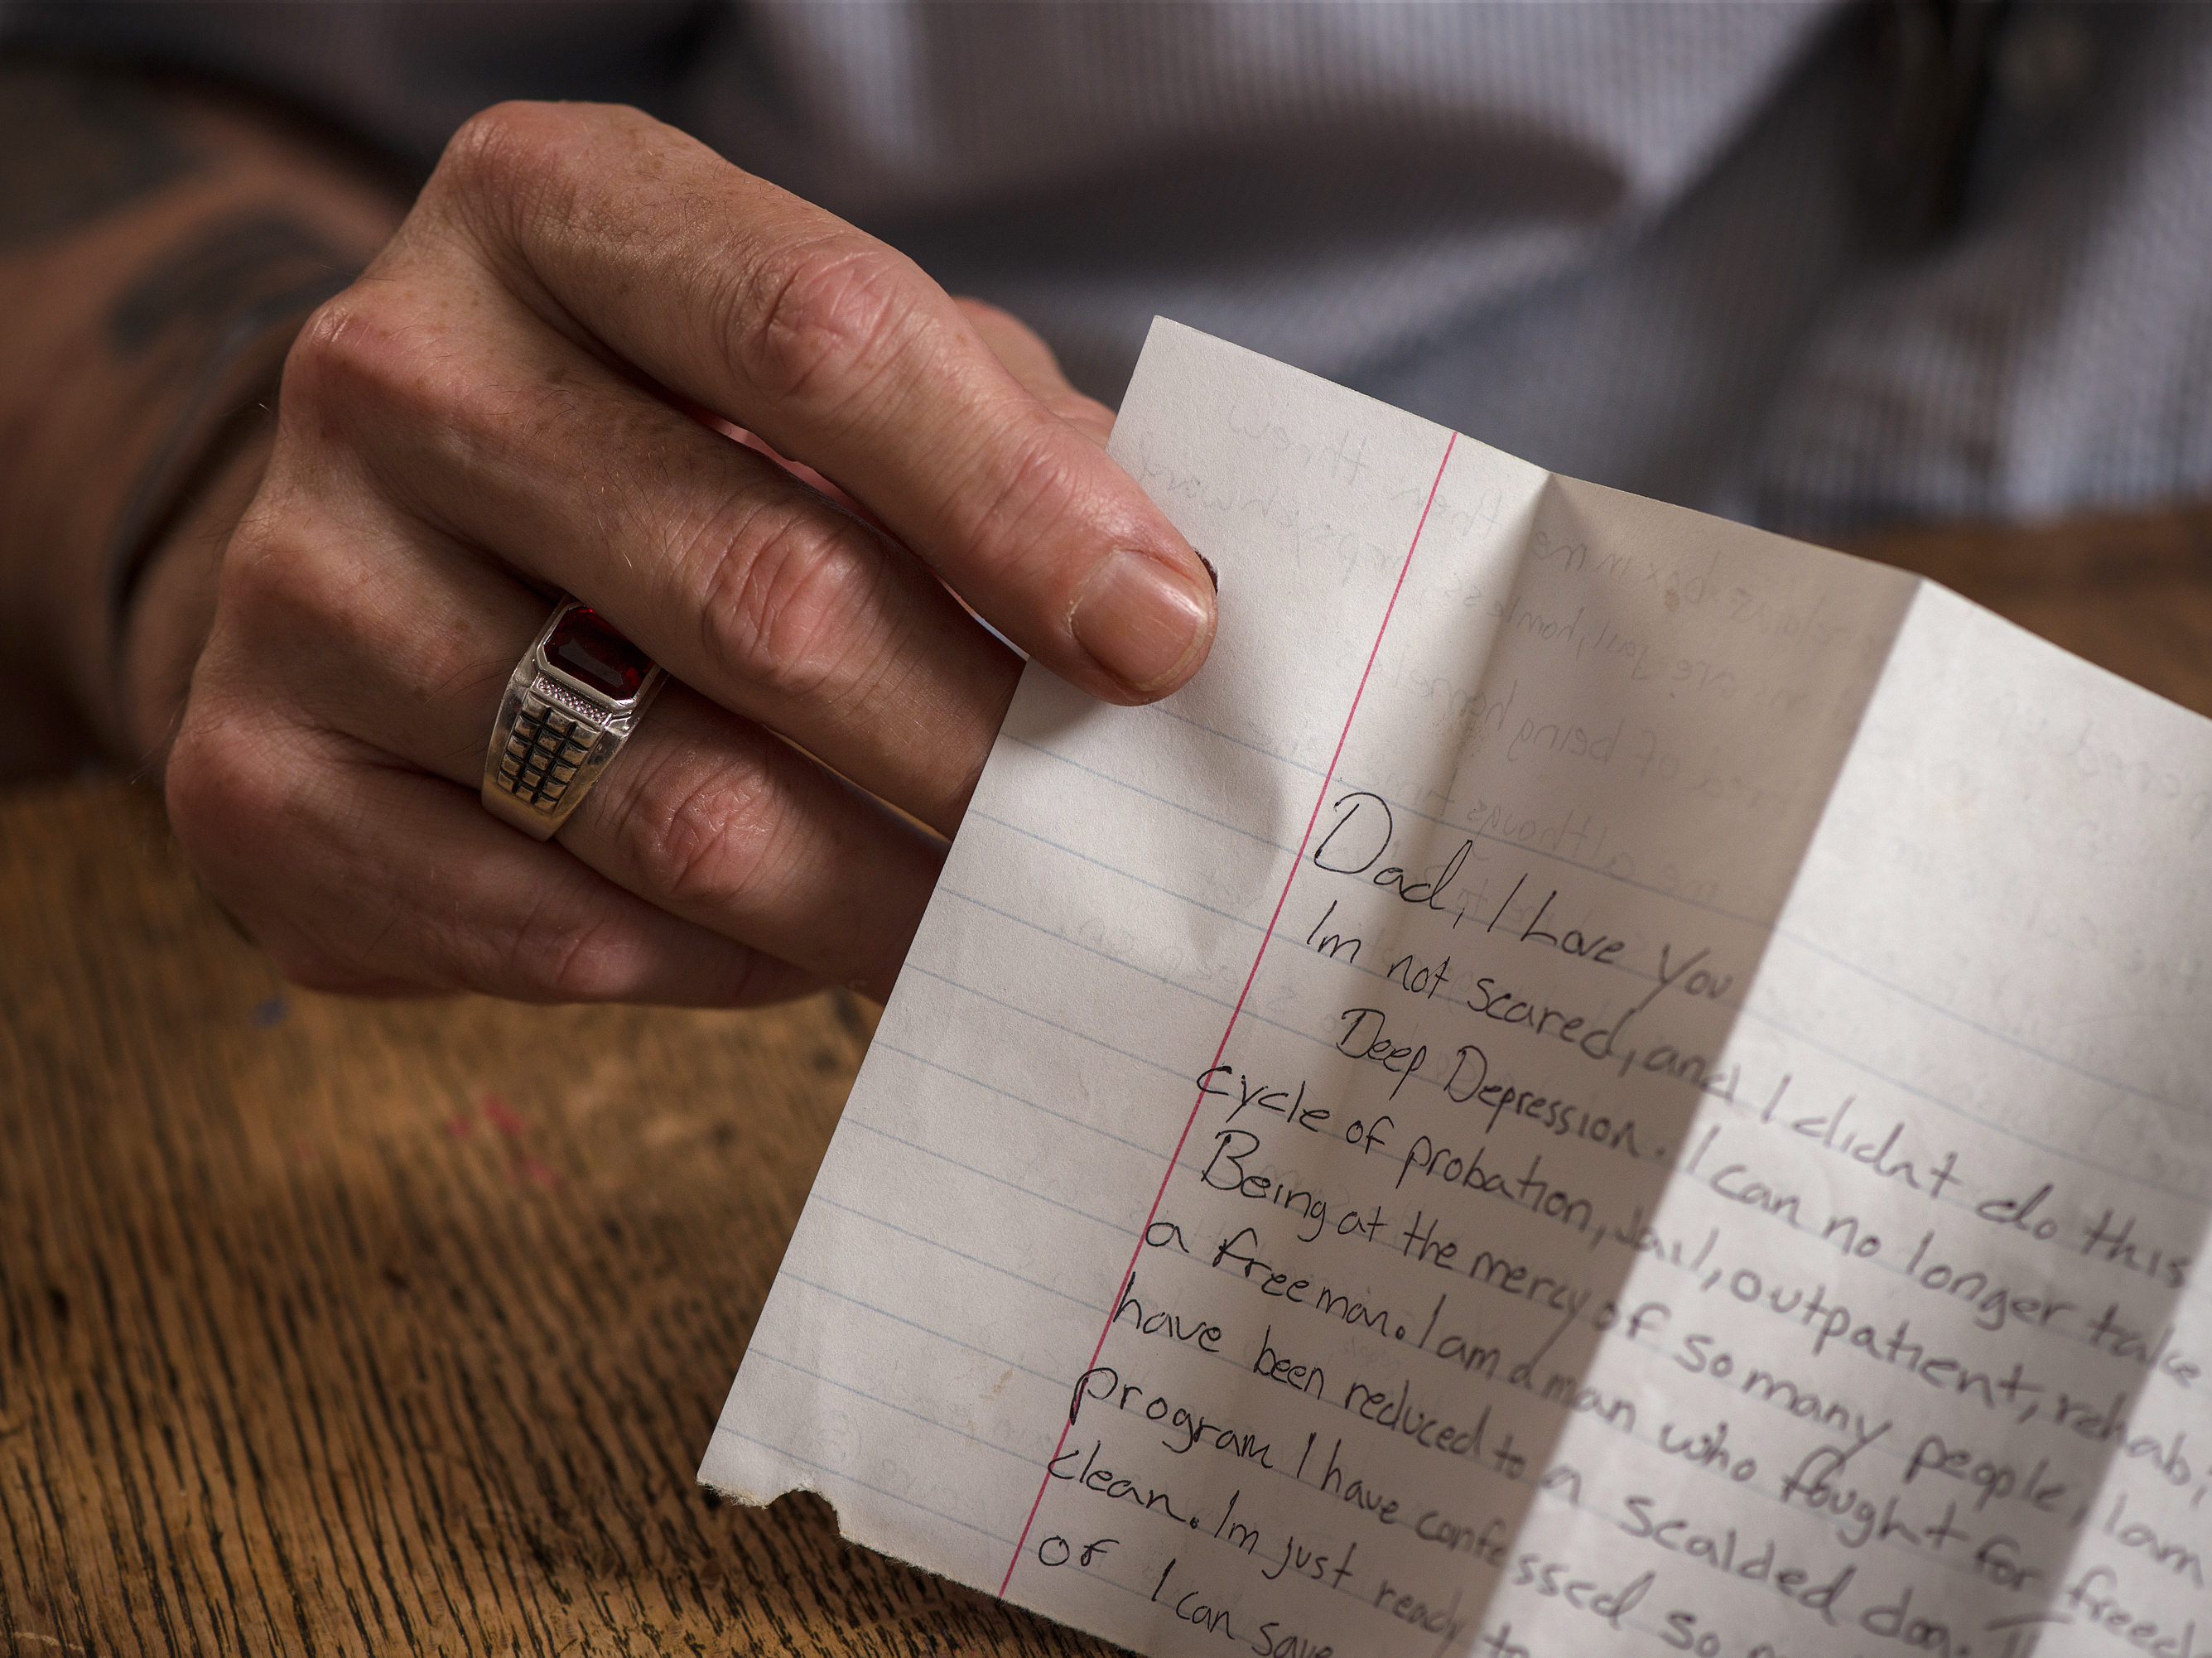 Dad, I Love You
Im not scared, and I didnt do this
Deep Depression. I can no longer take
cycle of probation, Jail, outpatient, rehab,
Being at the mercy of so many people, I am
a free man. I am a man who fought for freed
have been reduced to a scalded dog.
program I have confessed so
clean. Im just ready to
of I can save